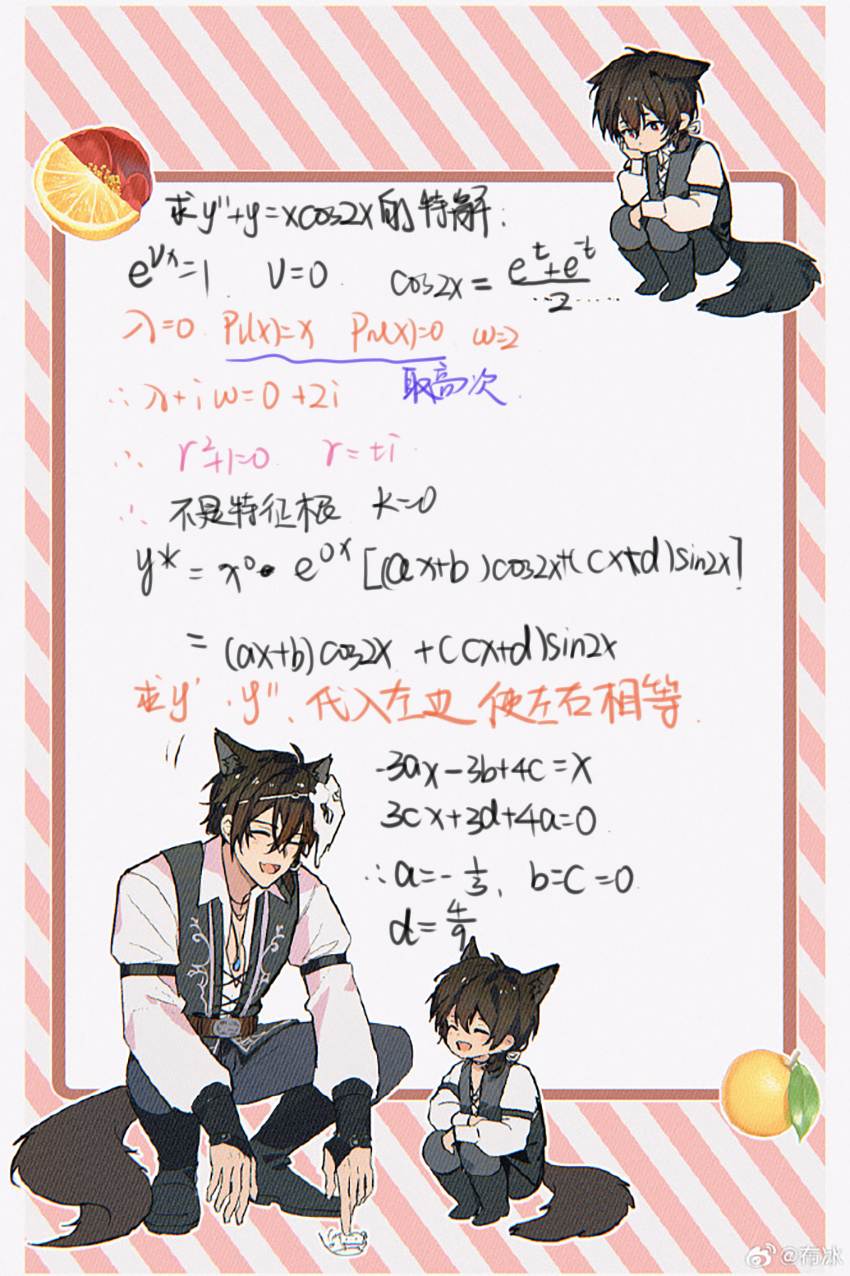 求y"+y=xcos2x的特解:
e^{νx}=1 ν=0 cos2x=\frac{e^t+e^{-t}}{2}
λ=0 Pl(x)=x Pn(x)=0 w=2
∴λ+iw=0+2i 取高次
∴ r²+1=0 r=±i
∴ 不是特征根 k=0
y*=x⁰·e^{0x}[(ax+b)cos2x+(cx+d)sin2x]
=(ax+b)cos2x+(cx+d)sin2x
求y'·y"、代入左边 使左右相等.
-3ax-3b+4c=x
3cx+3d+4a=0
∴a=-\frac{1}{3}、b=c=0
d=\frac{4}{9}
@布冰